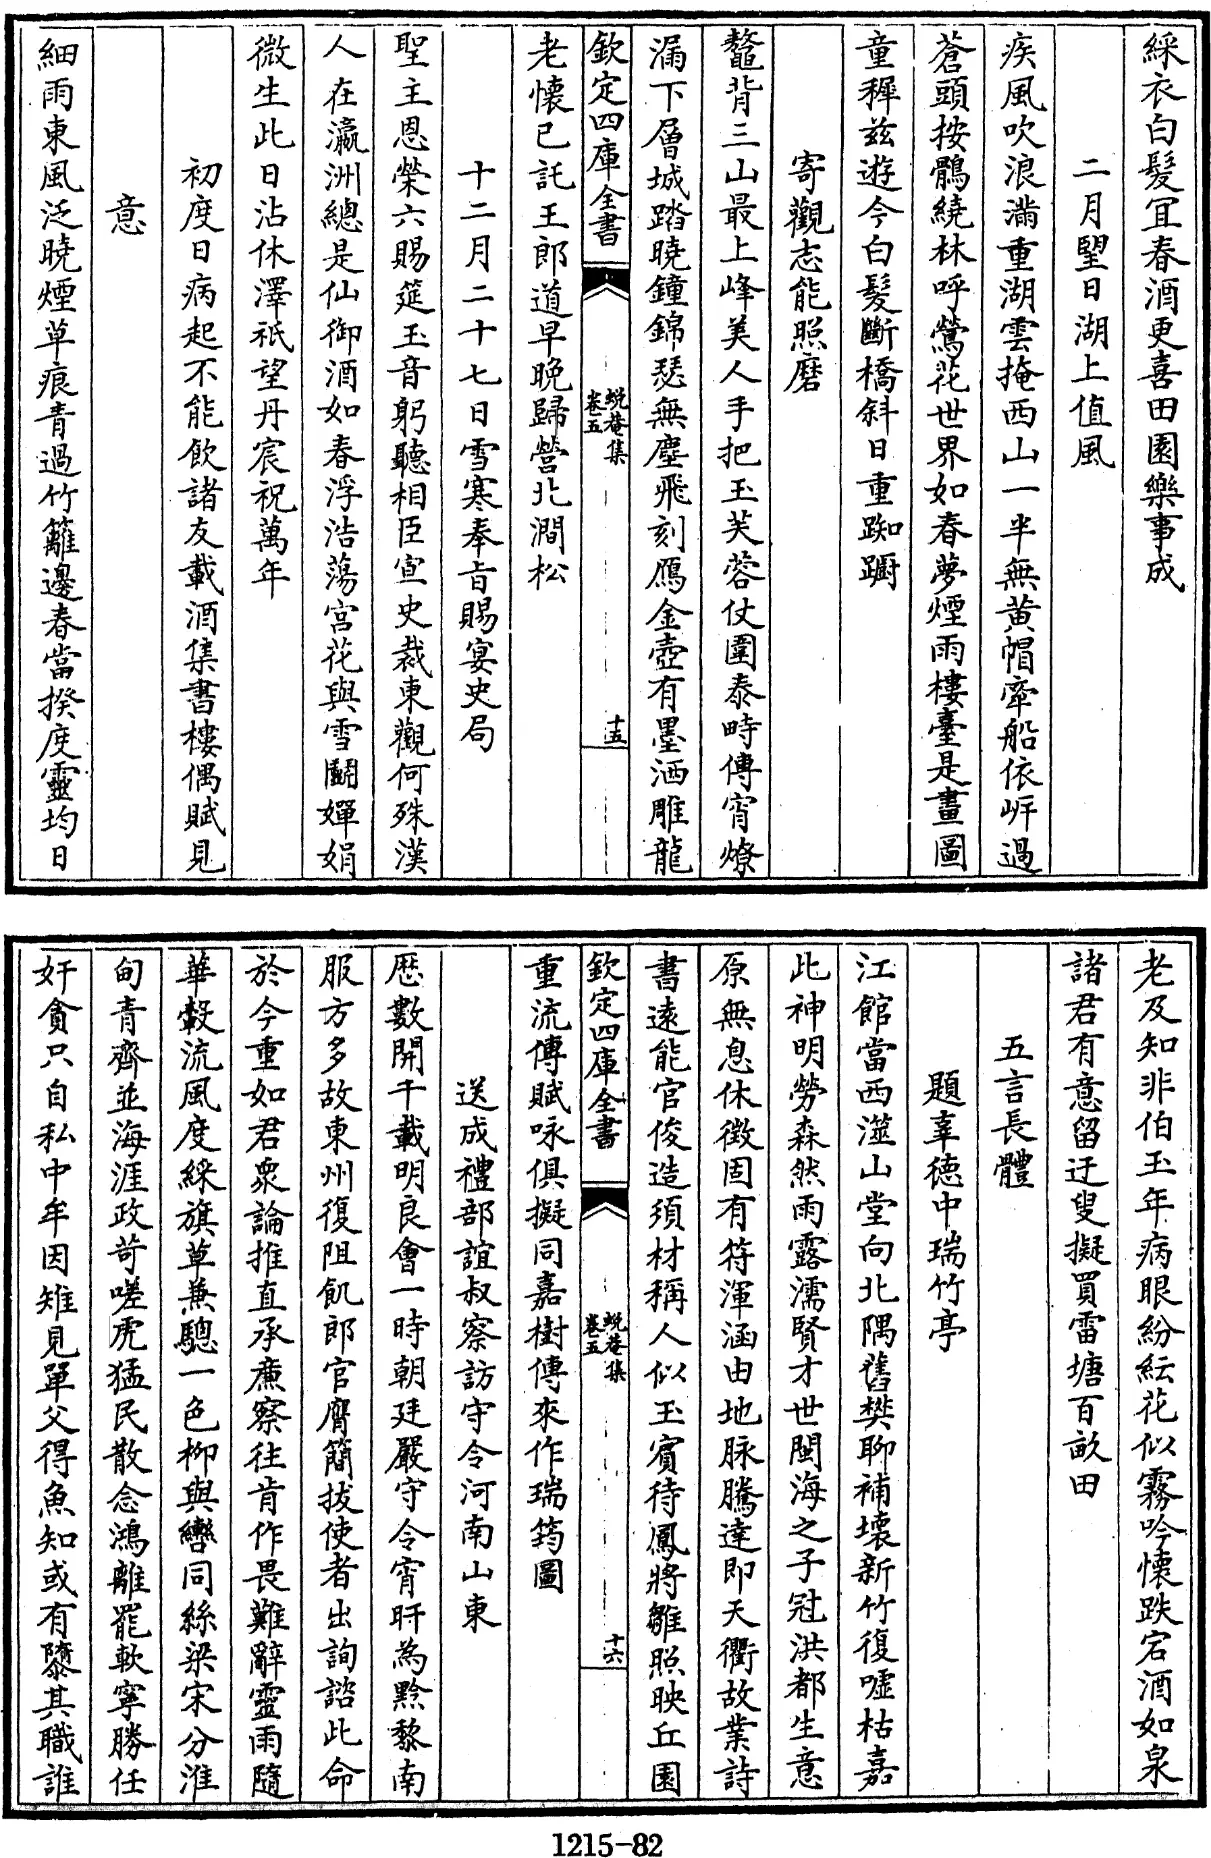 綵衣白髮宜春酒更喜田園樂事成
二月朢日湖上值風
疾風吹浪滿重湖雲掩西山一半無黄帽牽船依岸過
蒼頭按鶻繞林呼鶯花世界如春夢煙雨樓臺是畫圖
童穉兹遊今白髮斷橋斜日重踟躕
寄觀志能照磨
鼇背三山最上峰美人手把玉芙蓉仗圍泰畤傳宵燎
漏下層城踏曉鐘錦瑟無塵飛刻鴈金壺有墨洒雕龍
欽定四庫全書
蛻菴集
卷五
十五
老懷已託王郎道早晚歸營北澗松
十二月二十七日雪寒奉旨賜宴史局
聖主恩榮六賜筵玉音躬聽相臣宣史裁東觀何殊漢
人在瀛洲總是仙御酒如春浮浩蕩宮花與雪鬭嬋娟
微生此日沾休澤祇望丹宸祝萬年
初度日病起不能飲諸友載酒集書樓偶賦見
意
細雨東風泛曉煙草痕青過竹籬邊春當揆度靈均日
老及知非伯玉年病眼紛紜花似霧吟懷跌宕酒如泉
諸君有意留迂叟擬買雷塘百畝田
五言長體
題辜德中瑞竹亭
江館當西澨山堂向北隅舊樊聊補壞新竹復嘘枯嘉
此神明勞森然雨露濡賢才世閩海之子冠洪都生意
原無息休徵固有符渾涵由地脉騰達即天衢故業詩
書遠能官俊造須材稱人似玉賓待鳳將雛照映丘園
欽定四庫全書
蛻菴集
卷五
十六
重流傳賦咏俱擬同嘉樹傳來作瑞筠圖
送成禮部誼叔察訪守令河南山東
厯數開千載明良會一時朝廷嚴守令宵旰為黔黎南
服方多故東州復阻飢郎官膺簡拔使者出詢諮此命
於今重如君衆論推直承廉察往肯作畏難辭靈雨隨
華轂流風度綵旗草兼驄一色柳與轡同絲梁宋分淮
甸青齊並海涯政苛嗟虎猛民散念鴻離罷軟寧勝任
奸貪只自私中牟因雉見單父得魚知或有隳其職誰
1215-82